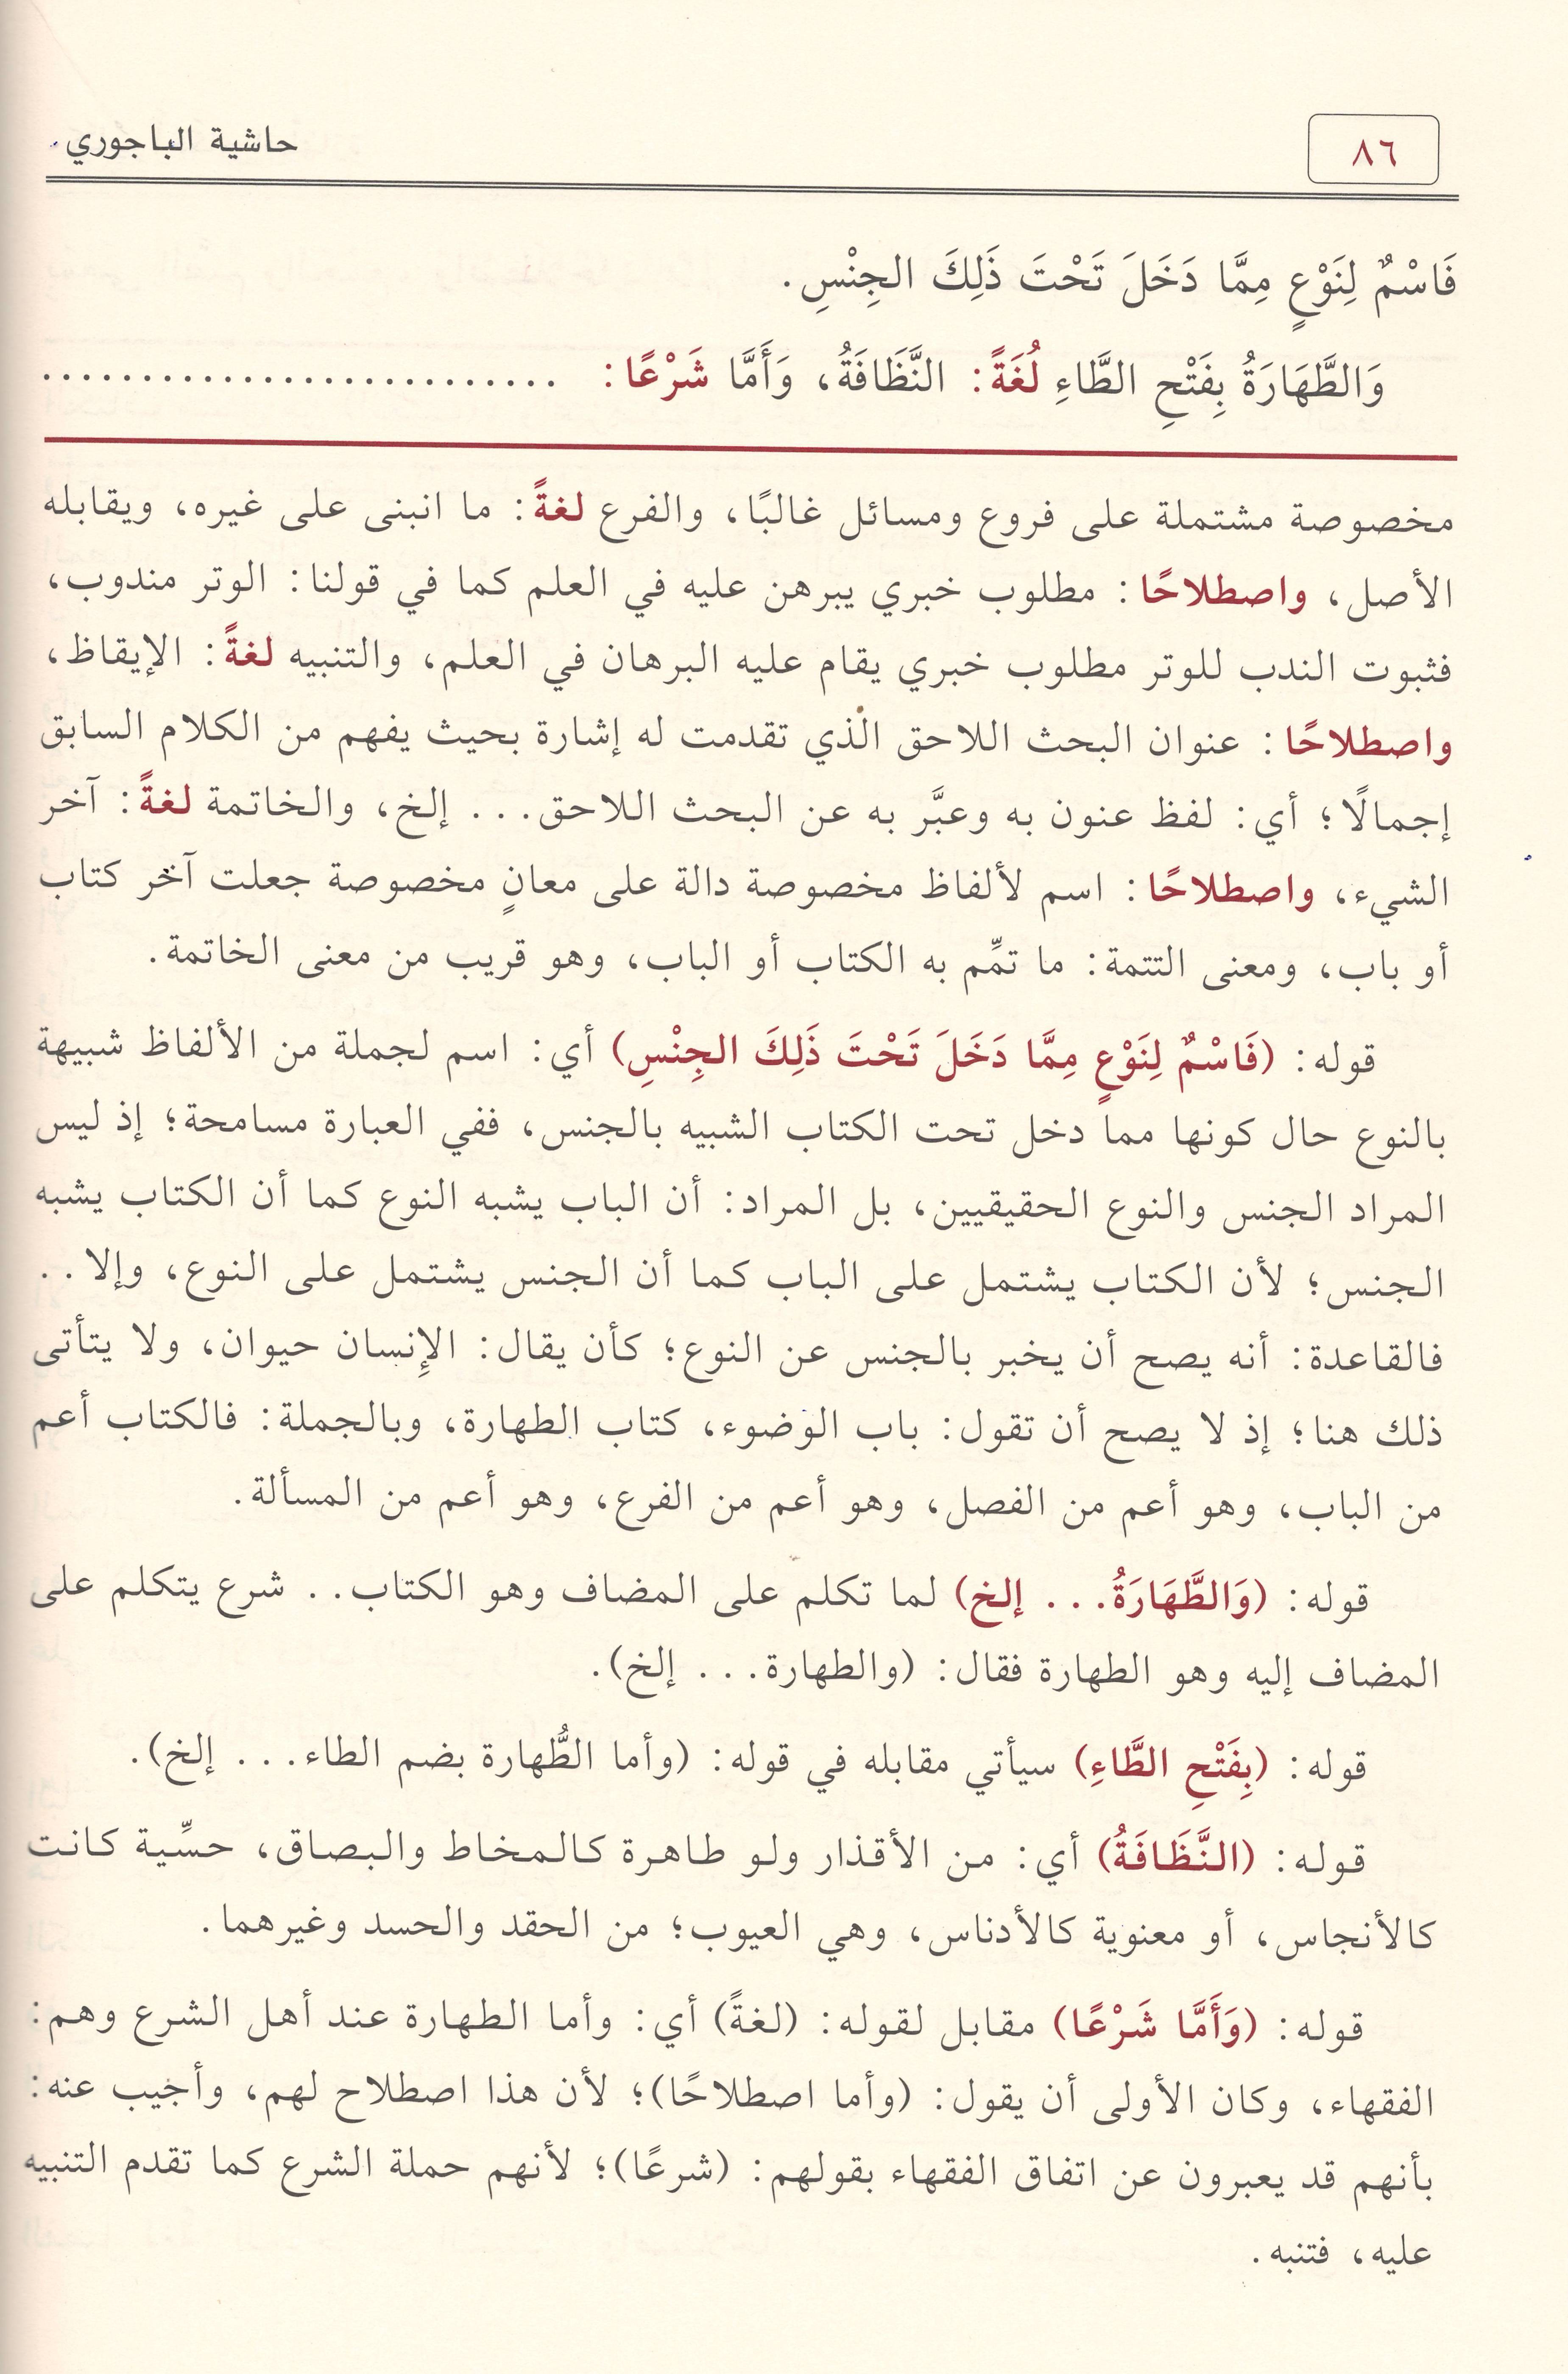 ٨٦
حاشية الباجوري
فَاسْمٌ لِنَوْعٍ مِمَّا دَخَلَ تَحْتَ ذَلِكَ الجِنْسِ.
وَالطَّهَارَةُ بِفَتْحِ الطَّاءِ لُغَةً: النَّظَافَةُ، وَأَمَّا شَرْعًا: ..........................
مخصوصة مشتملة على فروع ومسائل غالبًا، والفرع لغةً: ما انبنى على غيره، ويقابله
الأصل، واصطلاحًا: مطلوب خبري يبرهن عليه في العلم كما في قولنا: الوتر مندوب،
فثبوت الندب للوتر مطلوب خبري يقام عليه البرهان في العلم، والتنبيه لغةً: الإيقاظ،
واصطلاحًا: عنوان البحث اللاحق الذي تقدمت له إشارة بحيث يفهم من الكلام السابق
إجمالًا؛ أي: لفظ عنون به وعبَّر به عن البحث اللاحق... إلخ، والخاتمة لغةً: آخر
الشيء، واصطلاحًا: اسم لألفاظ مخصوصة دالة على معانٍ مخصوصة جعلت آخر كتاب
أو باب، ومعنى التتمة: ما تمِّم به الكتاب أو الباب، وهو قريب من معنى الخاتمة.
قوله: (فَاسْمٌ لِنَوْعٍ مِمَّا دَخَلَ تَحْتَ ذَلِكَ الجِنْسِ) أي: اسم لجملة من الألفاظ شبيهة
بالنوع حال كونها مما دخل تحت الكتاب الشبيه بالجنس، ففي العبارة مسامحة؛ إذ ليس
المراد الجنس والنوع الحقيقيين، بل المراد: أن الباب يشبه النوع كما أن الكتاب يشبه
الجنس؛ لأن الكتاب يشتمل على الباب كما أن الجنس يشتمل على النوع، وإلا..
فالقاعدة: أنه يصح أن يخبر بالجنس عن النوع؛ كأن يقال: الإنسان حيوان، ولا يتأتى
ذلك هنا؛ إذ لا يصح أن تقول: باب الوضوء، كتاب الطهارة، وبالجملة: فالكتاب أعم
من الباب، وهو أعم من الفصل، وهو أعم من الفرع، وهو أعم من المسألة.
قوله: (وَالطَّهَارَةُ... إلخ) لما تكلم على المضاف وهو الكتاب.. شرع يتكلم على
المضاف إليه وهو الطهارة فقال: (والطهارة... إلخ).
قوله: (بِفَتْحِ الطَّاءِ) سيأتي مقابله في قوله: (وأما الطُّهارة بضم الطاء... إلخ).
قوله: (النَّظَافَةُ) أي: من الأقذار ولو طاهرة كالمخاط والبصاق، حسِّية كانت
كالأنجاس، أو معنوية كالأدناس، وهي العيوب؛ من الحقد والحسد وغيرهما.
قوله: (وَأَمَّا شَرْعًا) مقابل لقوله: (لغةً) أي: وأما الطهارة عند أهل الشرع وهم:
الفقهاء، وكان الأولى أن يقول: (وأما اصطلاحًا)؛ لأن هذا اصطلاح لهم، وأجيب عنه:
بأنهم قد يعبرون عن اتفاق الفقهاء بقولهم: (شرعًا)؛ لأنهم حملة الشرع كما تقدم التنبيه
عليه، فتنبه.